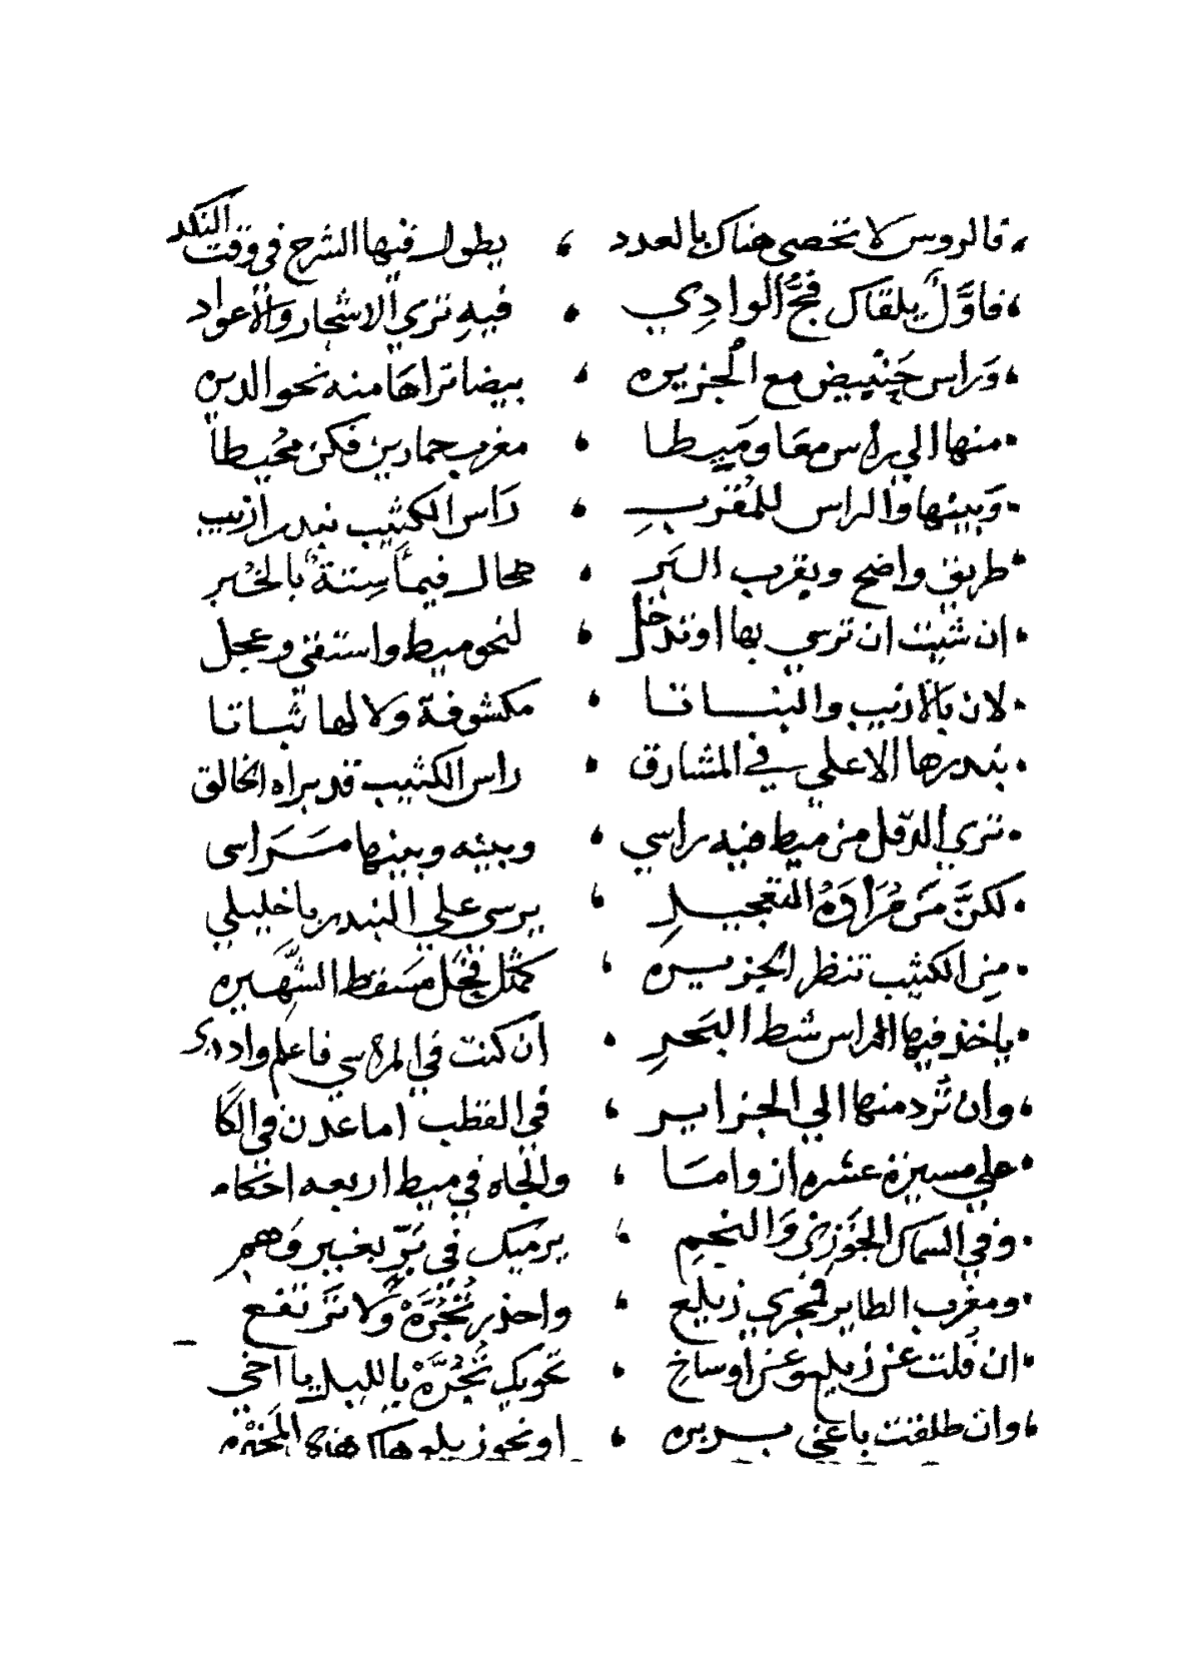 فالروس لا تحصى هناك بالعدد ، يطول فيها الشرح في وقت النكد
فاوَّلْ يلقاك فجُّ الوادِي ، فيهِ تري الاشجار والاعواد
وَراس جَنْبيض مع الجزيره ، بيضا تراهَا منه نحو الديره
منها الي راس معَا ومَيِطا ، مغرب حمارين فكن مُحيطا
وَبينها والراس للمُقربِ ، رَاس الكثيب بندر ازيب
طريق واضح ويقرب البَر ، محال فيما سِتةٌ بالخُبر
ان شيت ان ترسي بها او تدخل ، لنحو ميط واستقي وعجل
لان بالازيب والبناتا ، مكشوفة ولا لها ثباتا
بندرها الاعلي في المشارق ، راس الكثيب قد براه الخالق
تري الدّقل من ميط فيه راسي ، وبينه وبينها مَراسى
لكنَّ مَن مُرَادَهُ التعجيلِ ، يرسى علي البندر يا خليلي
مِن الكثيب تنظر الجزيره ، كمثل فحْل مسقط الشَّهيره
ياخذ فيها الراس شط البَحرِ ، ان كنت في المرسي فاعلم وادرِ
وان تُرد منها الي الجزاير ، في القطب اما عدن في
علي مسيرة عشره ازواما ، والجاه في ميط اربعه احكام
وفي السماك الجَوْزيْ وَالنجمِ ، يرميك في بَرّ بغير وَهم
ومغرب الطاير فجري زيلع ، واحذر تجُرَّهْ ولا ترتفع
ان قلت عن زيلع وعن اوساخِ ، تحويك تجُرَّهْ بالليل يا اخي
وان طلقت باغي بربره ، او نحو زيلع هاك هذه